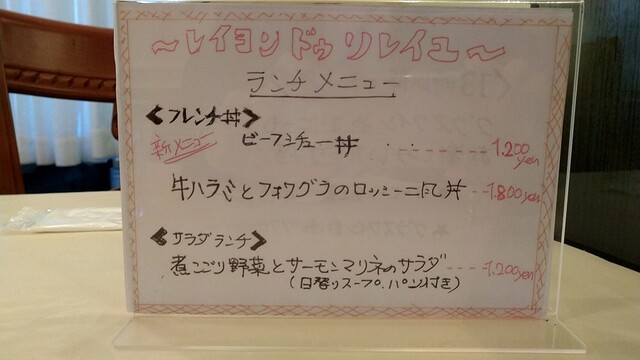 ～レイヨンドゥソレイユ～
ランチメニュー
＜フレンチ丼＞
新メニュー ビーフシチュー丼 ------ 1.200yen
牛ハラミとフォワグラのロッシーニ風丼 --- 1.800yen
＜サラダランチ＞
煮こごり野菜とサーモンマリネのサラダ --- 1.200yen
（日替りスープ.パン付き）